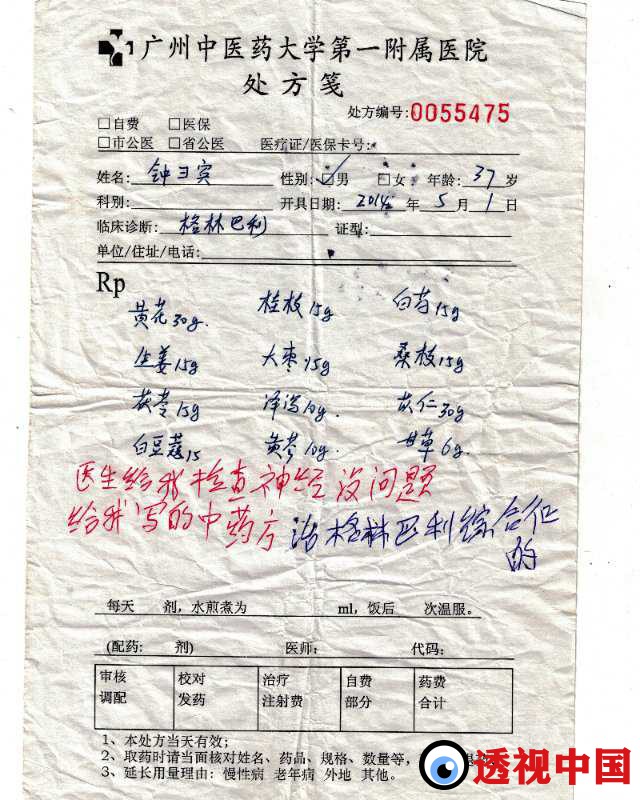 广州中医药大学第一附属医院
处方笺
处方编号:0055475
□自费 □医保
□市公医 □省公医 医疗证/医保卡号:
姓名: 钟 宾 性别: □男 □女 年龄: 37 岁
科别: 开具日期: 2014 年 5 月 1 日
临床诊断: 格林巴利 证型:
单位/住址/电话:
Rp
黄花30g. 桂枝15g 白芍15g
生姜15g 大枣15g 桑枝15g
茯苓15g 泽泻10g. 苡仁30g
白豆蔻15 黄芩10g. 甘草6g.
医生给我检查神经没问题
给我写的中药方 治格林巴利综合征
的
每天 剂,水煎煮为 ml,饭后 次温服。
(配药: 剂) 医师: 代码:
审核 校对 治疗 自费 药费
调配 发药 注射费 部分 合计
1、本处方当天有效;
2、取药时请当面核对姓名、药品、规格、数量等,
3、延长用量理由: 慢性病 老年病 外地 其他。
透视中国